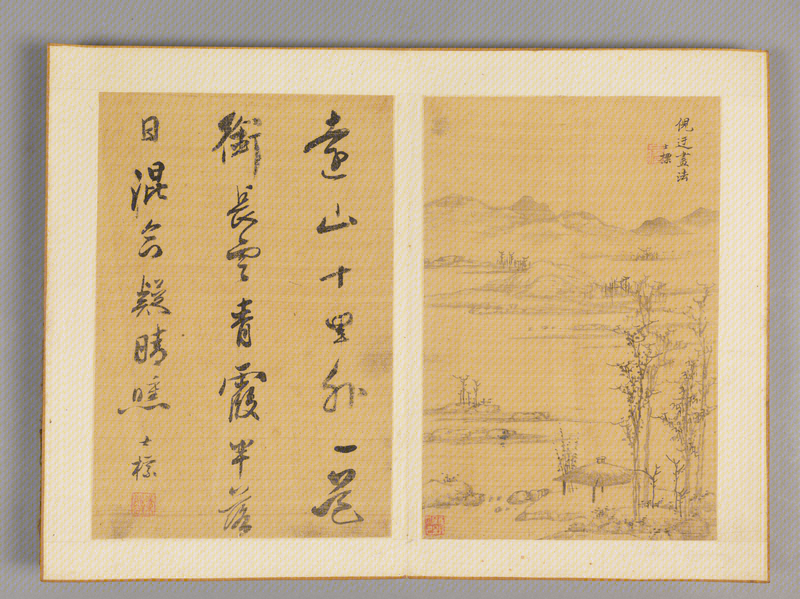 倪迂畫法
士標
遠山十里外一
銜長雲青霞半落
日混合疑晴曛
士標